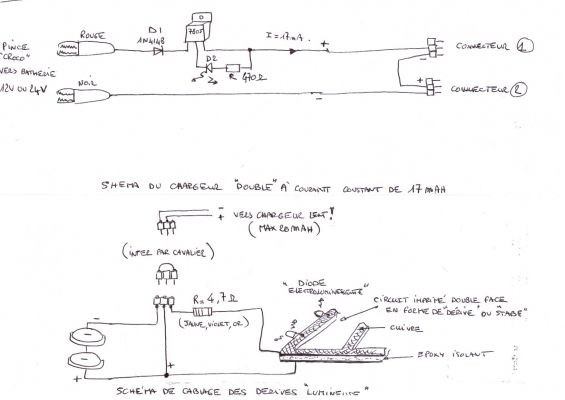 D1
ROUGE
1N4148
7805
I = 17mA
+
PINCE
"CROCO"
VERS BATTERIE
12V OU 24V
D2
R 470Ω
CONNECTEUR 1
+
-
NOIR
-
CONNECTEUR 2
SHEMA DU CHARGEUR "DOUBLE" A COURANT CONSTANT DE 17 mAH
-
+ VERS CHARGEUR LENT!
(MAX 20mAH)
(INTER PAR CAVALIER)
"DIODE
ELECTROLUMINESCENTE"
R=4,7Ω
(JAUNE, VIOLET, OR)
CIRCUIT IMPRIMÉ DOUBLE FACE
EN FORME DE "DERIVE" OU "STABE"
CUIVRE
EPOXY ISOLANT
-
+
+
SCHÉMA DE CABLAGE DES DERIVES "LUMINEUSE"